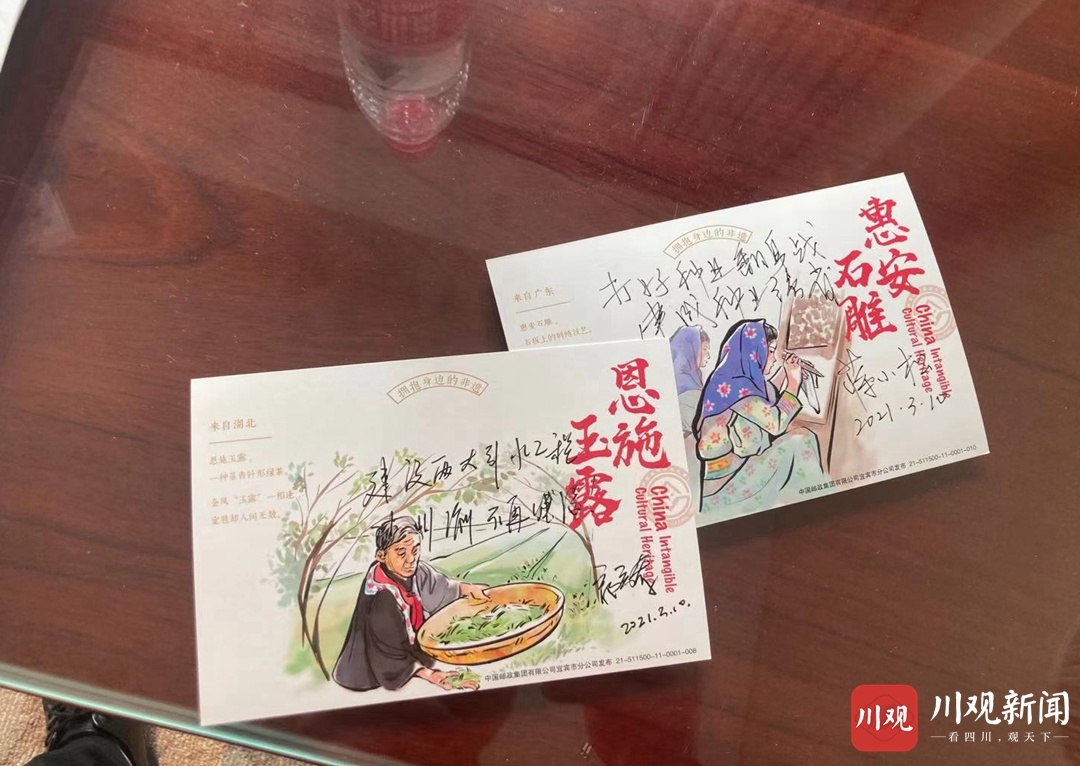 拥抱身边的非遗
惠安
石雕
China Intangible
Cultural Heritage
来自广东
惠安石雕，
石板上的刺绣技艺。
打好种业翻身战
种业强省
2021.3.10
中国邮政集团有限公司宜宾市分公司发布 21-511500-11-0001-010
拥抱身边的非遗
恩施
玉露
China Intangible
Cultural Heritage
来自湖北
恩施玉露，
一种蒸青针形绿茶，
金风“玉露”一相逢
胜却人间无数。
建设西大引水工程
川渝不再
2021.3.10.
中国邮政集团有限公司宜宾市分公司发布 21-511500-11-0001-008
川观
川观新闻
看四川，观天下